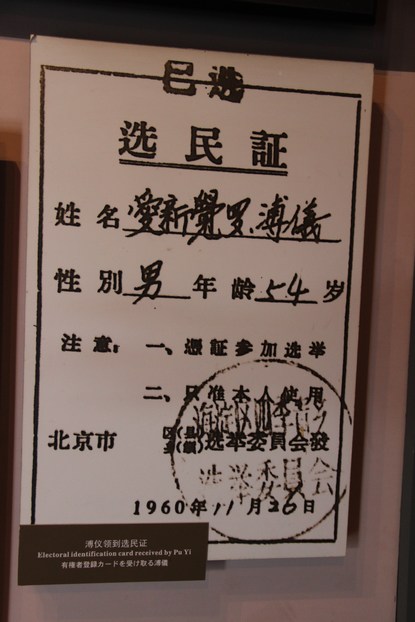 已选
选民証
姓名 愛新覺罗.溥儀
性別 男 年龄 54 岁
注意：一、憑証参加选举
二、只准本人使用
北京市 选举委員会發
选举委員会
1960年11月26日
溥仪领到选民证
Electoral identification card received by Pu Yi
有権者登録カードを受け取る溥儀